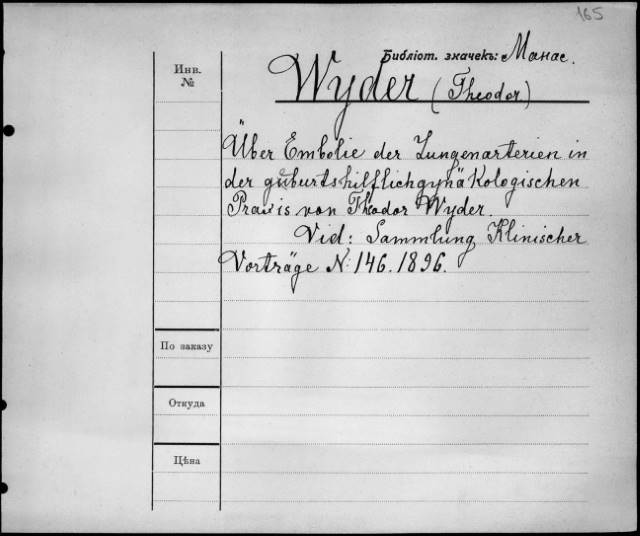 165
Библіот. значекъ: Манас.
Инв.
№
Wyder (Theodor)
Über Embolie der Lungenarterien in
der guburtshilflichgynäkologischen
Praxis von Theodor Wyder.
Vid: Sammlung Klinischer
Vorträge N: 146. 1896.
По заказу
Откуда
Цѣна